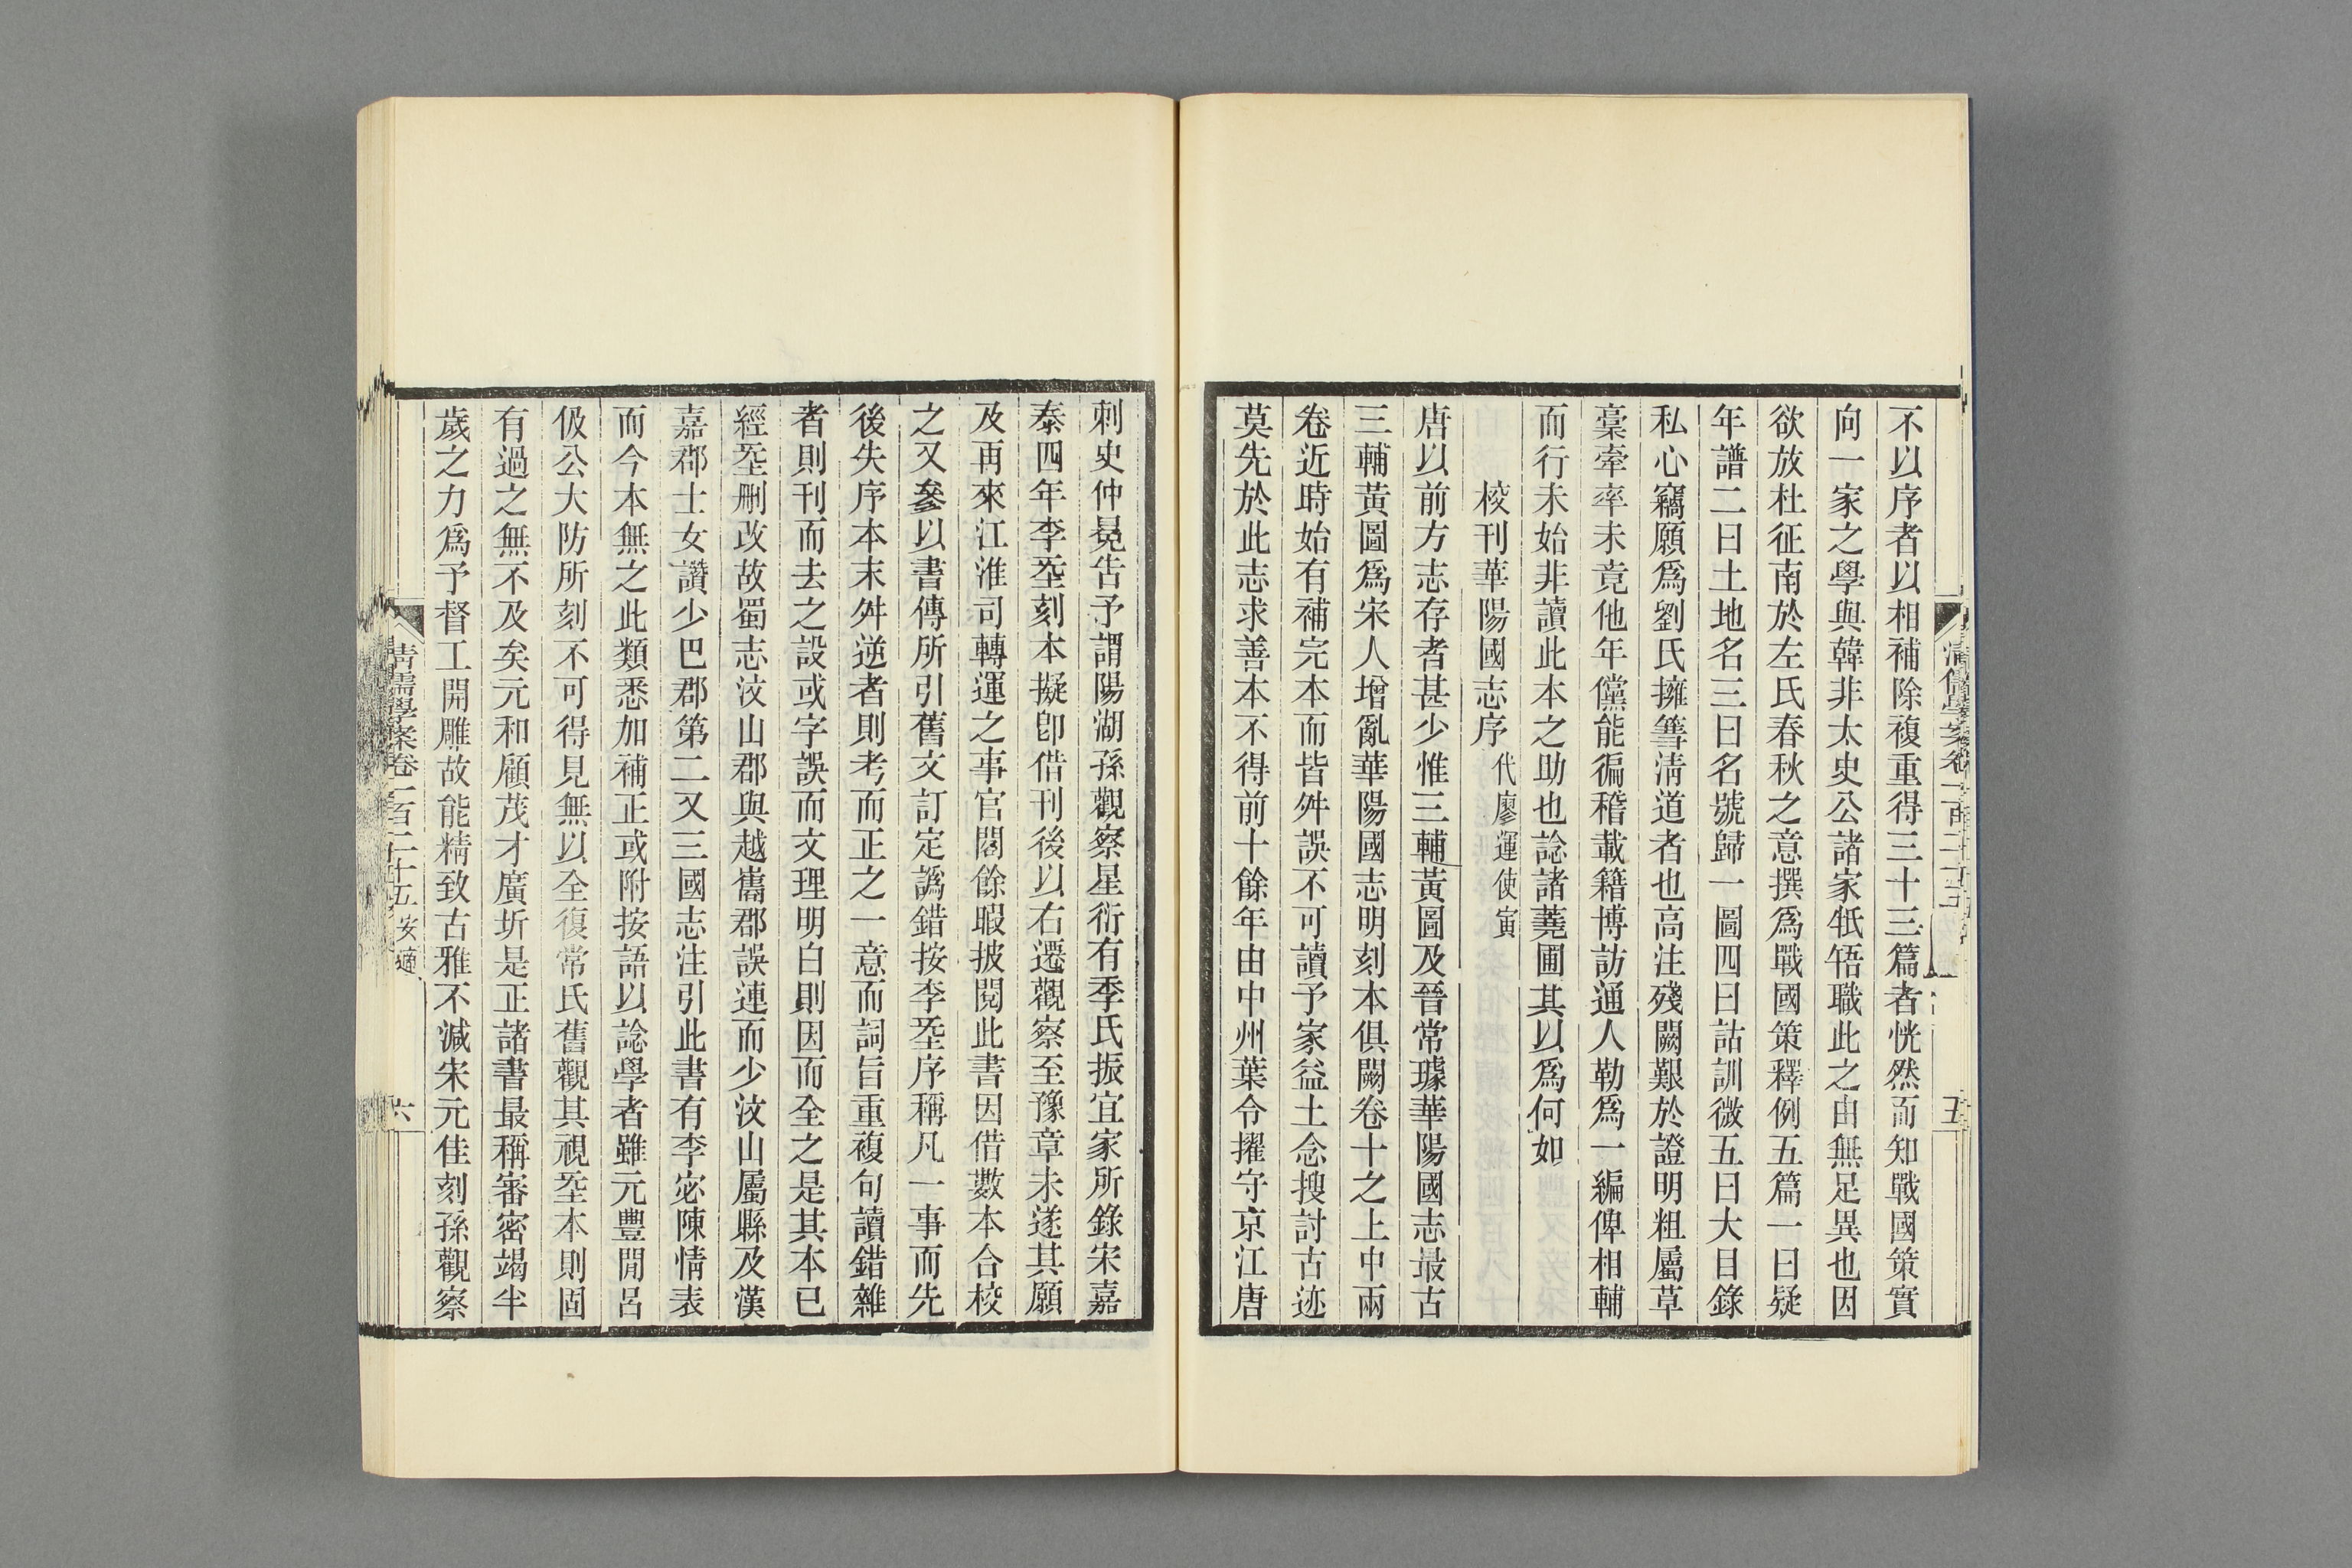 不以序者以相補除複重得三十三篇者恍然而知戰國策實
向一家之學與韓非太史公諸家牴牾職此之由無足異也因
欲放杜征南於左氏春秋之意撰爲戰國策釋例五篇一曰疑
年譜二曰土地名三曰名號歸一圖四曰詁訓微五曰大目錄
私心竊願爲劉氏擁篲淸道者也高注殘闕艱於證明粗屬草
稾牽率未竟他年儻能徧稽載籍博訪通人勒爲一編俾相輔
而行未始非讀此本之助也諗諸蕘圃其以爲何如
校刊華陽國志序 代廖運使寅
唐以前方志存者甚少惟三輔黃圖及晉常璩華陽國志最古
三輔黃圖爲宋人增亂華陽國志明刻本俱闕卷十之上中兩
卷近時始有補完本而皆舛誤不可讀予家益土念搜討古迹
莫先於此志求善本不得前十餘年由中州葉令擢守京江唐
刺史仲冕告予謂陽湖孫觀察星衍有季氏振宜家所錄宋嘉
泰四年李𡊮刻本擬卽借刊後以右遷觀察至豫章未遂其願
及再來江淮司轉運之事官閣餘暇披閱此書因借數本合校
之又叅以書傳所引舊文訂定譌錯按李𡊮序稱凡一事而先
後失序本末舛逆者則考而正之一意而詞旨重複句讀錯雜
者則刊而去之設或字誤而文理明白則因而全之是其本已
經𡊮刪改故蜀志汶山郡與越嶲郡誤連而少汶山屬縣及漢
嘉郡士女讚少巴郡第二又三國志注引此書有李宓陳情表
而今本無之此類悉加補正或附按語以諗學者雖元豐閒呂
伋公大防所刻不可得見無以全復常氏舊觀其視𡊮本則固
有過之無不及矣元和顧茂才廣圻是正諸書最稱審密竭半
歲之力爲予督工開雕故能精致古雅不減宋元佳刻孫觀察
淸儒學案卷一百二十五 安適 六